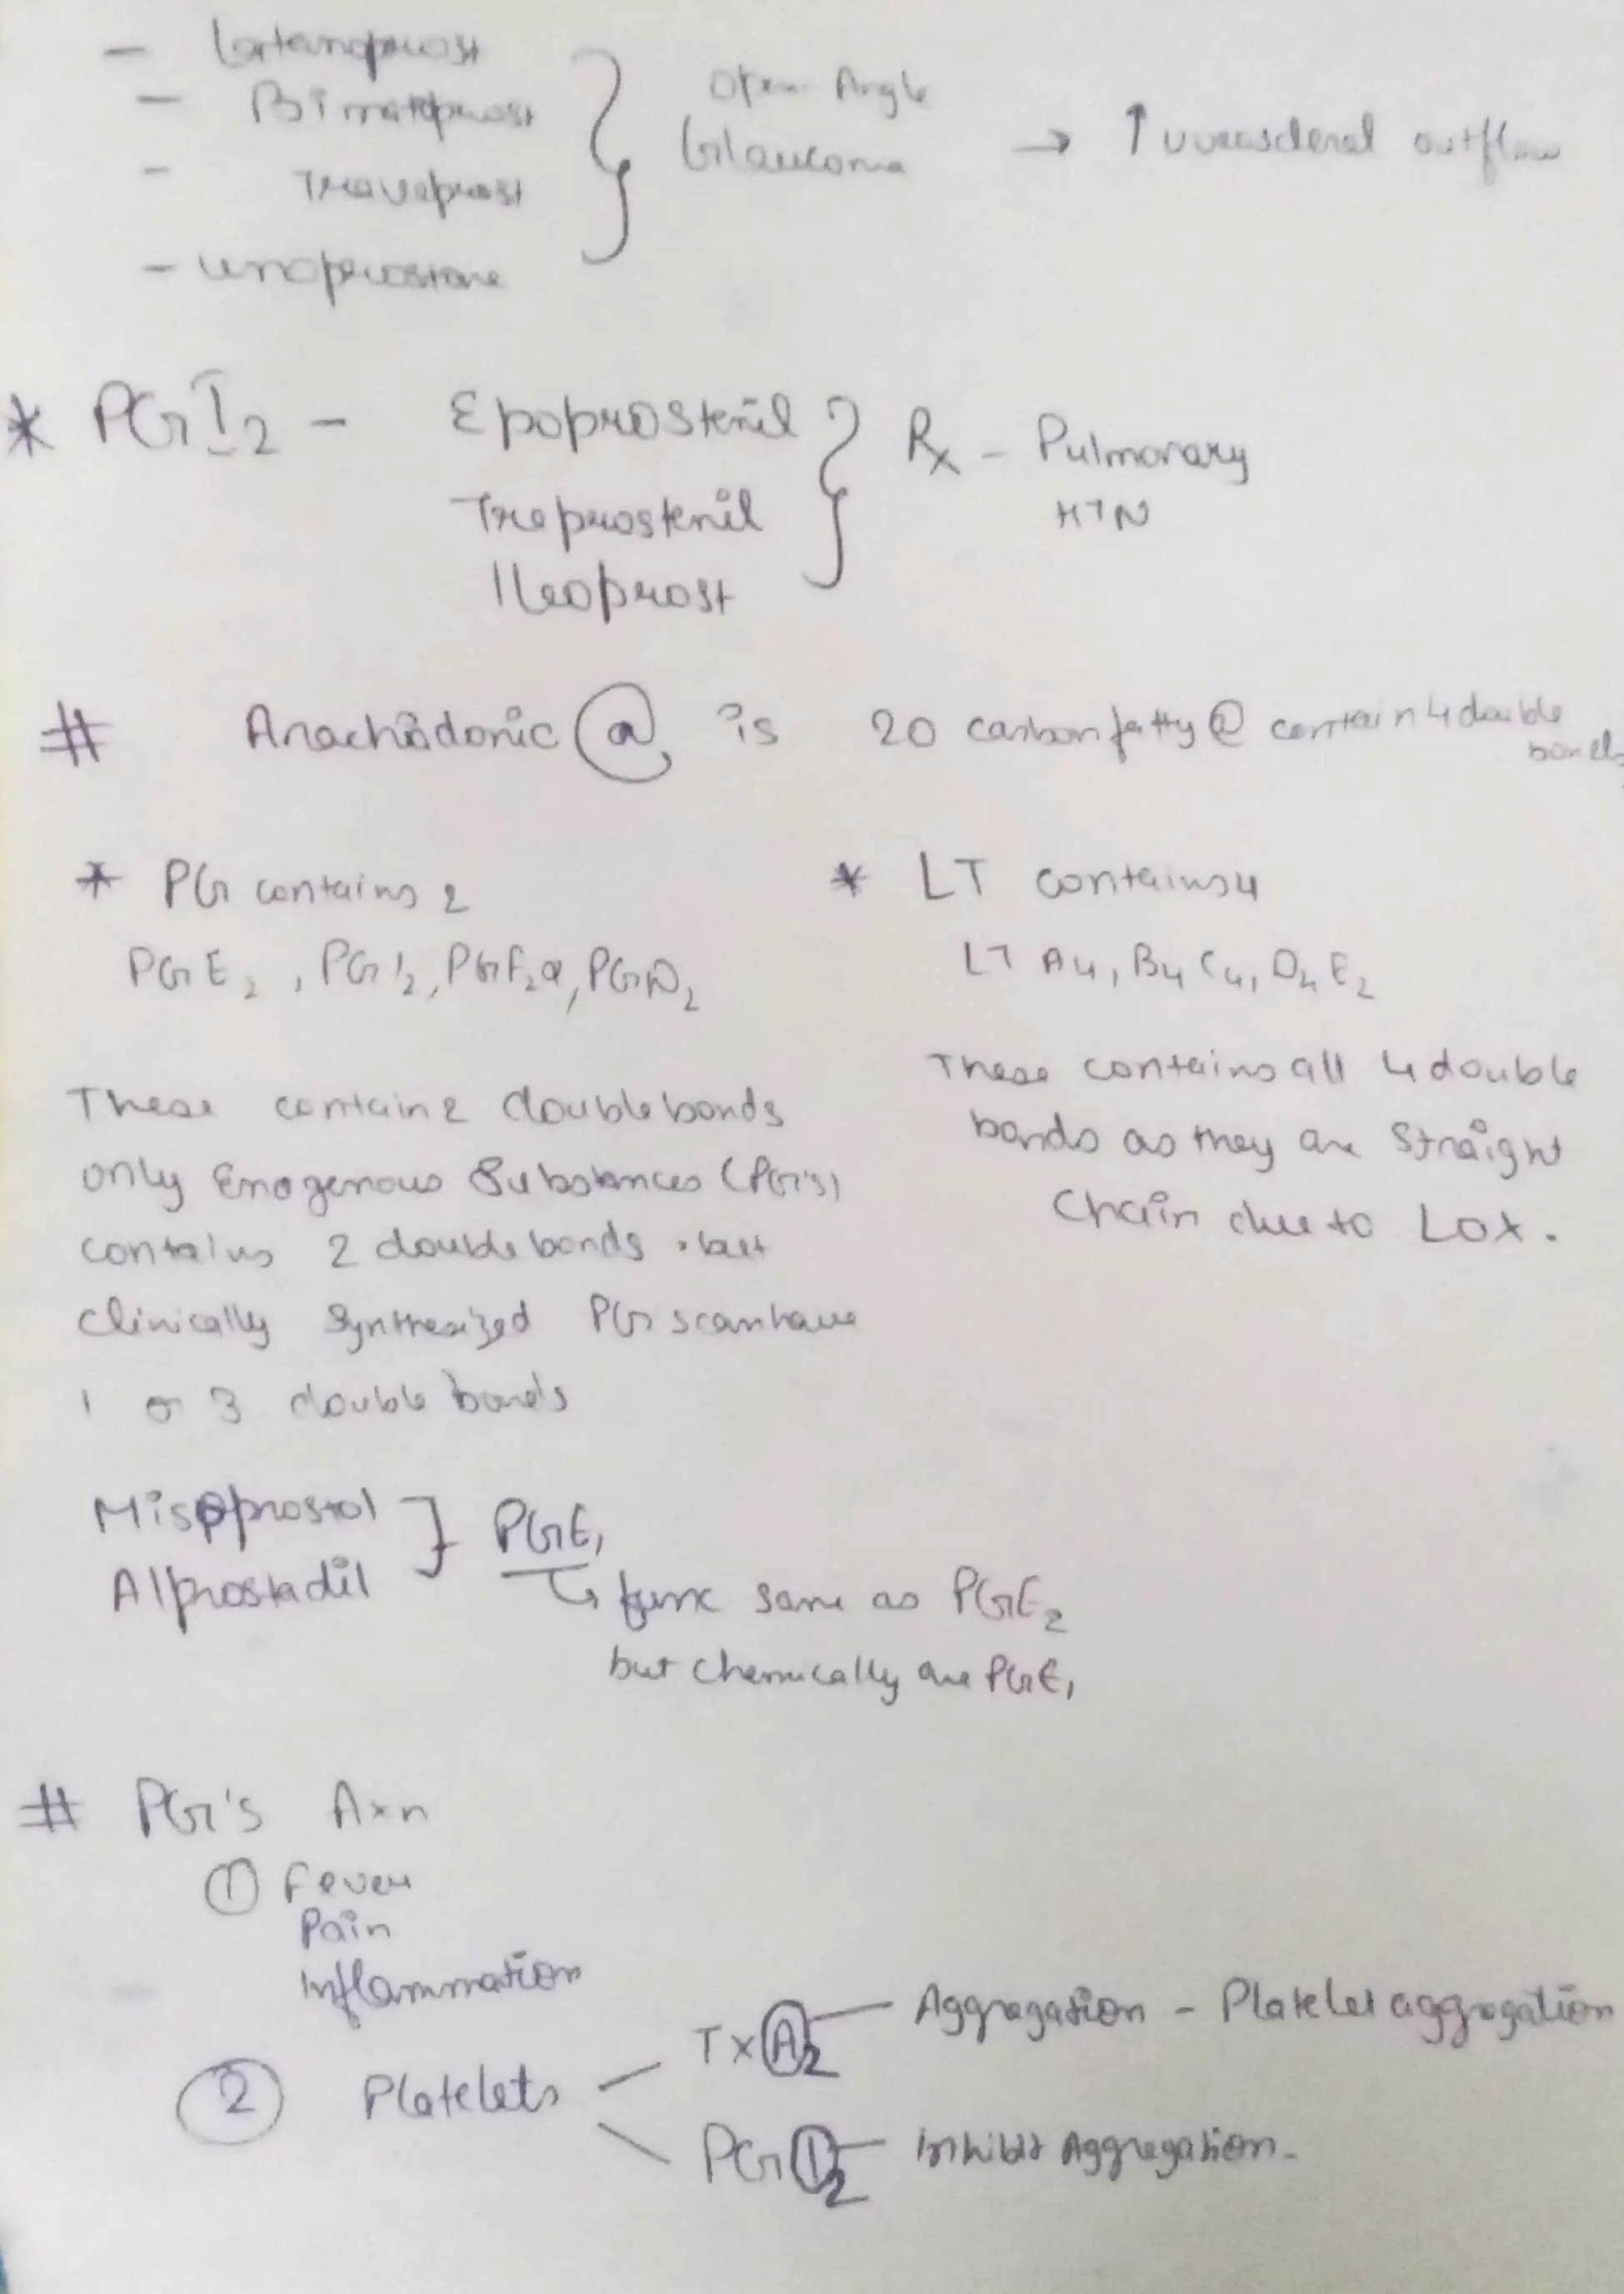 - Latanoprost
- Bimatoprost
- Travoprost
- unoprostone
Open Angle
Glaucoma → ↑ uveoscleral outflow
* PGI2 - Epoprostenil
Treprostenil
Ileoprost
Rx - Pulmonary
HTN
# Arachidonic @ is 20 carbon fatty @ contain 4 double
bonds
* PG contains 2
PGE2, PGI2, PGF2α, PGD2
These contain 2 double bonds
only Enogenous Substances (PG's)
contains 2 double bonds, but
clinically synthesized PGs can have
1 or 3 double bonds
* LT contains 4
LT A4, B4 C4, D4 E2
These contains all 4 double
bonds as they are straight
Chain due to LOX.
Misoprostol
Alprostadil
PGE1
↳ func same as PGE2
but chemically are PGE1
# PG's Axn
① Fever
Pain
Inflammation
② Platelets
TxA2 - Aggregation - Platelet aggregation
PGI2 - Inhibit Aggregation.